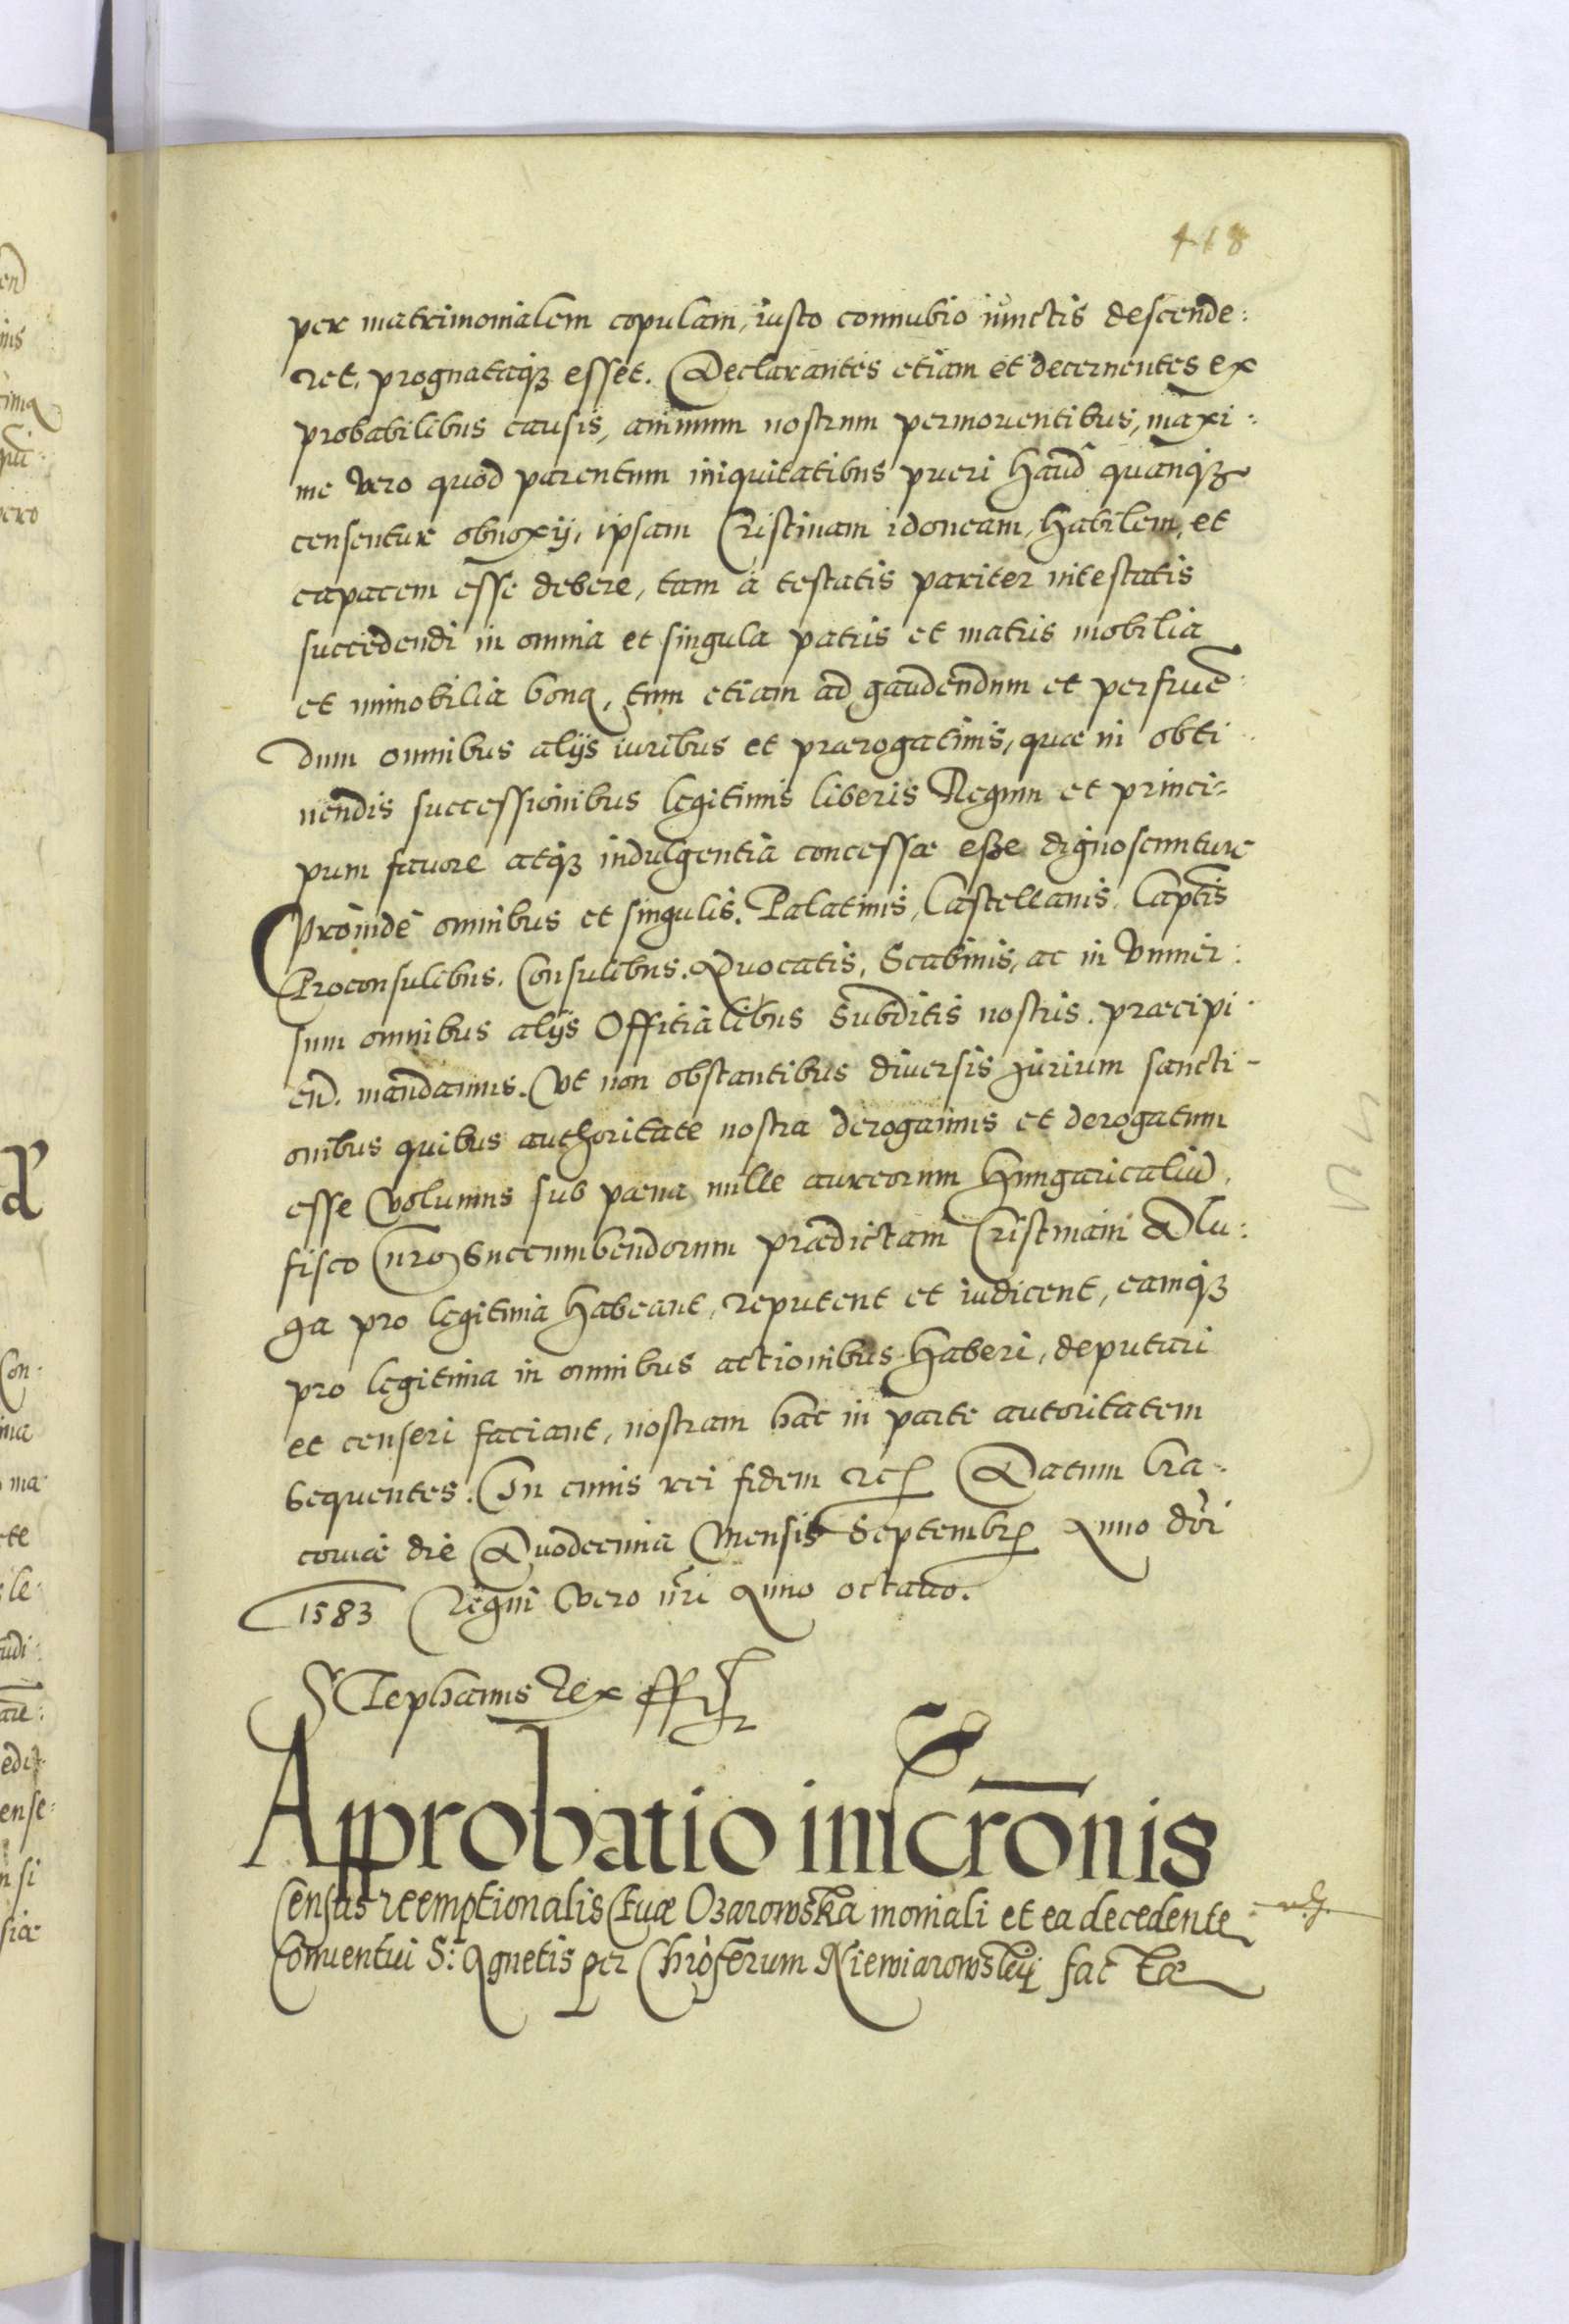 418
per matrimonialem copulam, iusto connubio iunctis descende:
ret, prognataq3 esset. Declarantes etiam et decernentes ex
probabilibus causis, animum nostrum permouentibus, maxi:
me vero quod parentum iniquitatibus pueri haud quanq3
censentur obnoxij, ipsam Cristinam idoneam, habilem, et
capacem esse debere, tam à testatis pariter intestatis
succedendi in omnia et singula patris et matris mobilia
et immobilia bona, tum etiam ad gaudendum et perfruē:
dum omnibus alijs iuribus et praerogatiuis, quae in obti:
nendis successionibus legitimis liberis Regum et princi:
pum fauore atq3 indulgentia concessae esse dignoscuntur
Proinde omnibus et singulis. Palatinis, Castellanis, Captis
Proconsulibus. Consulibus. Aduocatis, Scabinis, ac in vniuer:
sum omnibus alijs Offitialibus Subditis nostris. praecipi:
end. mandamus. Vt non obstantibus diuersis iurium sancti-
onibus quibus authoritate nostra derogamus et derogatum
esse volumus sub paena mille aureorum Hungaricaliū,
fisco nro Succumbendorum praedictam Cristinam Dlu:
ga pro legitima habeant, reputent et iudicent, eamq3
pro legitima in omnibus actionibus haberi, deputari
et censeri faciant, nostram hac in parte autoritatem
Sequentes. In cuius rei fidem etc. Datum Cra:
couiae die Duodecima Mensis Septembr Anno dni
1583 Regni vero nri Anno octauo.
Stephanus Rex sst
Approbatio inscrōnis
Census reemptionalis Euae Ozarowska moniali et ea decedente
Conuentui S: Agnetis per Chrōferum Niewiarowskij factae